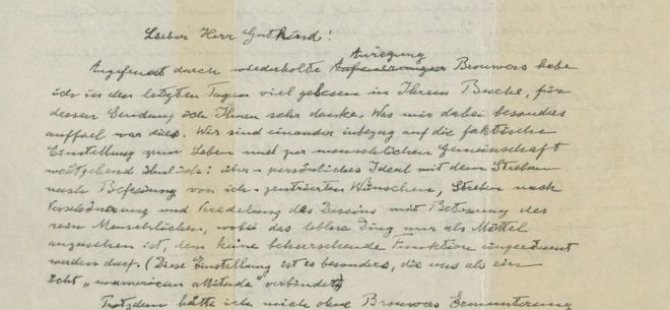 Lieber Herr Gutkind!
Anregung
Angefeuert durch wiederholte Brouwers habe
ich in den letzten Tagen viel gelesen in Ihrem Buche, für
dessen Sendung ich Ihnen sehr danke. Was mir dabei besonders
auffiel war dies. Wir sind einander inbezug auf die faktische
Einstellung zum Leben und zur menschlichen Gemeinschaft
weitgehend ähnlich: über-persönliches Ideal mit dem Streben
nach Befreiung von ich-zentrierten Wünschen, Streben nach
Verschönerung und Veredelung des Daseins mit Betonung des
rein Menschlichen, wobei das leblose Ding nur als Mittel
anzusehen ist, dem keine beherrschende Funktion eingeräumt
werden darf. (Diese Einstellung ist es besonders, die uns als ein
echt „unamerican attitude" verbindet)
Trotzdem hätte ich mich ohne Brouwers Ermunterung